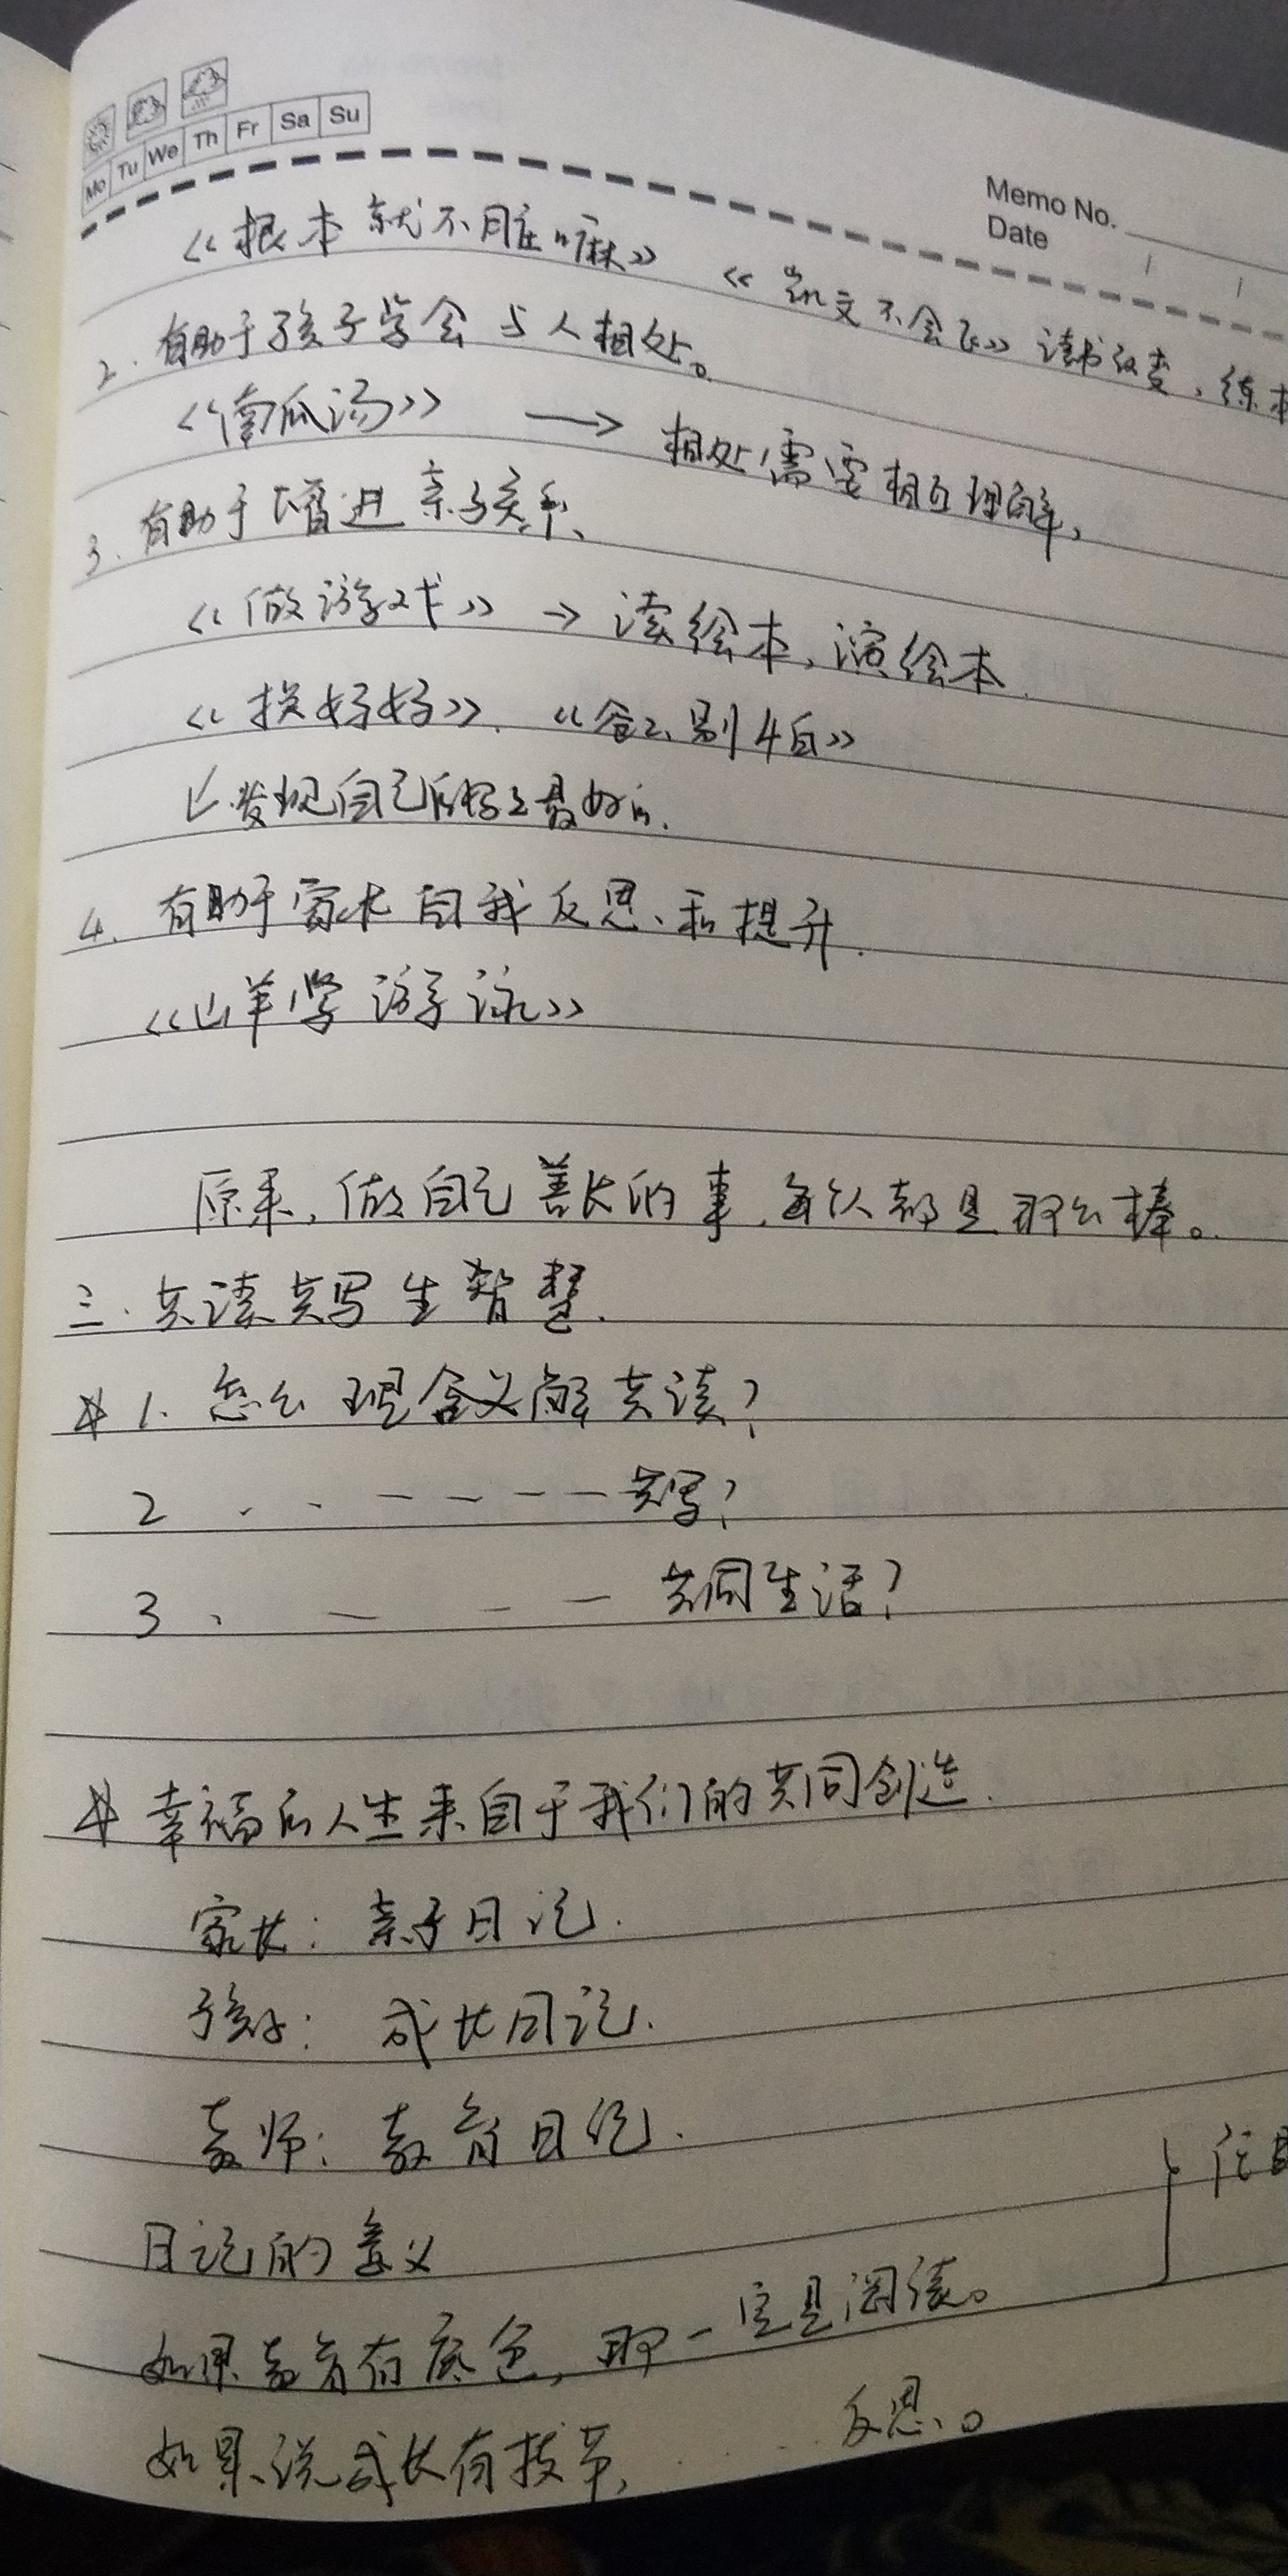 Mo Tu We Th Fr Sa Su
Memo No.
Date
《根本就不脏嘛》 《凯文不会飞》 读书改变,练
2. 有助于孩子学会与人相处。
《南瓜汤》 → 相处需要相互理解,
3. 有助于增进亲子关系、
《做游戏》 → 读绘本,演绘本.
《换好好》. 《爸爸别怕》
发现自己的最好的.
4. 有助于家长自我反思、和提升.
《山羊学游泳》
原来,做自己善长的事,每个人都是那么棒。
三. 共读共写生智慧.
1. 怎么理含义解共读?
2 . . — — — — 共写?
3 、 — — — 共同生活?
幸福的人生来自于我们的共同创造.
家长: 亲子日记.
孩子: 成长日记.
教师: 教育日记.
日记的意义
如果教育有底色,那一定是阅读。
如果说成长有技节, . . . . 反思。